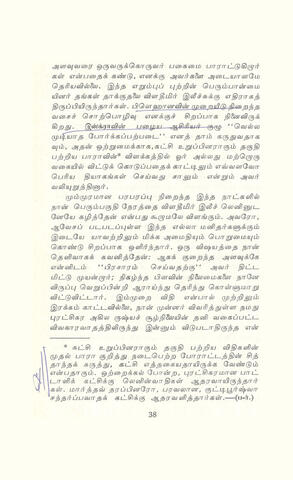 அளவுவரை ஒருவருக்கொருவர் பகைமை பாராட்டுகிறார்
கள் என்பதைக் கண்டு, எனக்கு அவர்களை அடையாளமே
தெரியவில்லை. இந்த எறும்புப் புற்றின் பெரும்பான்மை
யினர் தங்கள் தாக்குதலை விளதிமிர் இலீச்சுக்கு எதிராகத்
திருப்பியிருந்தார்கள். பிளெஹானவின் முறையீடு நிறைந்த
வசைச் சொற்பொழிவு எனக்குச் சிறப்பாக நினைவிருக்
கிறது. இஸ்க்ராவின் பழைய ஆசிரியர் குழு "வெல்ல
முடியாத போர்க்கப்படை" எனத் தாம் கருதுவதாக
வும், அதன் ஒற்றுமைக்காக, கட்சி உறுப்பினராகும் தகுதி
பற்றிய பாராவின்* விளக்கத்தில் ஓர் அல்லது மற்றொரு
வகையில் விட்டுக் கொடுப்பதைக் காட்டிலும் எவ்வளவோ
பெரிய தியாகங்கள் செய்வது சாலும் என்றும் அவர்
வலியுறுத்தினார்.
மும்முரமான பரபரப்பு நிறைந்த இந்த நாட்களில்
நான் பெரும்பகுதி நேரத்தை விளதிமிர் இலீச் லெனினுட
னேயே கழித்தேன் என்பது கூறாமலே விளங்கும். அவரோ,
ஆவேசப் படபடப்புள்ள இந்த எல்லா மனிதர்களுக்கும்
இடையே யாவற்றிலும் மிக்க அமைதியும் பொறுமையும்
கொண்டு சிறப்பாக ஒளிர்ந்தார். ஒரு விஷயத்தை நான்
தெளிவாகக் கவனித்தேன்: ஆகக் குறைந்த அளவுக்கே
என்னிடம் "பிரசாரம் செய்வதற்கு" அவர் திட்ட
மிட்டு முயன்றார்; நிகழ்ந்த பிளவின் நிலைமைகளை நானே
விருப்பு வெறுப்பின்றி ஆராய்ந்து தெரிந்து கொள்ளுமாறு
விட்டுவிட்டார். இம்முறை விதி என்பால் முற்றிலும்
இரக்கம் காட்டவில்லை, நான் முன்னர் விவரித்துள்ள நமது
புரட்சிகர அகில ருஷ்யச் சூழ்நிலையின் தனி வகைப்பட்ட
விவகாரவாதத்திலிருந்து இன்னும் விடுபடாதிருந்த என்
* கட்சி உறுப்பினராகும் தகுதி பற்றிய விதிகளின்
முதல் பாரா குறித்து நடைபெற்ற போராட்டத்தின் சித்
தாந்தக் கருத்து, கட்சி எத்தகையதாயிருக்க வேண்டும்
என்பதாகும். ஒற்றைக்கல் போன்ற, புரட்சிகரமான பாட்
டாளிக் கட்சிக்கு லெனின்வாதிகள் ஆதரவாயிருந்தார்
கள். மார்த்தவ் தரப்பினரோ, பரவலான, குட்டிபூர்ஷ்வா
சந்தர்ப்பவாதக் கட்சிக்கு ஆதரவளித்தார்கள்.—(ப-ர்.)
38